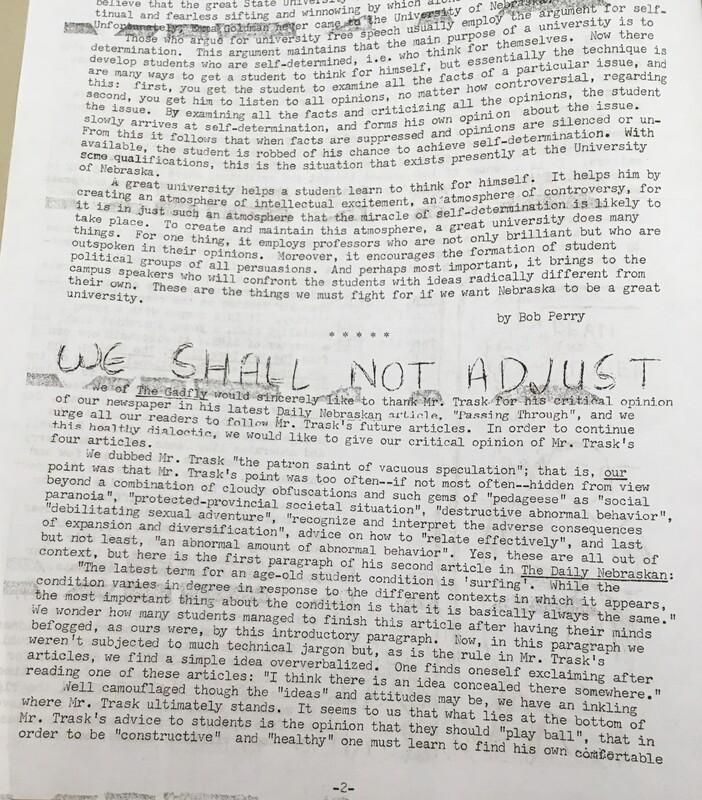 believe that the great State Universi
tinual and fearless sifting and winnowing by which alone
Unfortunately, Emma Goldman never came to the University of Nebraska.
Those who argue for university free speech usually employ the argument for self-
determination. This argument maintains that the main purpose of a university is to
develop students who are self-determined, i.e. who think for themselves. Now there
are many ways to get a student to think for himself, but essentially the technique is
this: first, you get the student to examine all the facts of a particular issue, and
second, you get him to listen to all opinions, no matter how controversial, regarding
the issue. By examining all the facts and criticizing all the opinions, the student
slowly arrives at self-determination, and forms his own opinion about the issue.
From this it follows that when facts are suppressed and opinions are silenced or un-
available, the student is robbed of his chance to achieve self-determination. With
some qualifications, this is the situation that exists presently at the University
of Nebraska.
A great university helps a student learn to think for himself. It helps him by
creating an atmosphere of intellectual excitement, an atmosphere of controversy, for
it is in just such an atmosphere that the miracle of self-determination is likely to
take place. To create and maintain this atmosphere, a great university does many
things. For one thing, it employs professors who are not only brilliant but who are
outspoken in their opinions. Moreover, it encourages the formation of student
political groups of all persuasions. And perhaps most important, it brings to the
campus speakers who will confront the students with ideas radically different from
their own. These are the things we must fight for if we want Nebraska to be a great
university.
by Bob Perry
* * * * *
WE SHALL NOT ADJUST
We of The Gadfly would sincerely like to thank Mr. Trask for his critical opinion
of our newspaper in his latest Daily Nebraskan article, "Passing Through", and we
urge all our readers to follow Mr. Trask's future articles. In order to continue
this healthy dialectic, we would like to give our critical opinion of Mr. Trask's
four articles.
We dubbed Mr. Trask "the patron saint of vacuous speculation"; that is, our
point was that Mr. Trask's point was too often--if not most often--hidden from view
beyond a combination of cloudy obfuscations and such gems of "pedageese" as "social
paranoia", "protected-provincial societal situation", "destructive abnormal behavior",
"debilitating sexual adventure", "recognize and interpret the adverse consequences
of expansion and diversification", advice on how to "relate effectively", and last
but not least, "an abnormal amount of abnormal behavior". Yes, these are all out of
context, but here is the first paragraph of his second article in The Daily Nebraskan:
"The latest term for an age-old student condition is 'surfing'. While the
condition varies in degree in response to the different contexts in which it appears,
the most important thing about the condition is that it is basically always the same."
We wonder how many students managed to finish this article after having their minds
befogged, as ours were, by this introductory paragraph. Now, in this paragraph we
weren't subjected to much technical jargon but, as is the rule in Mr. Trask's
articles, we find a simple idea oververbalized. One finds oneself exclaiming after
reading one of these articles: "I think there is an idea concealed there somewhere."
Well camouflaged though the "ideas" and attitudes may be, we have an inkling
where Mr. Trask ultimately stands. It seems to us that what lies at the bottom of
Mr. Trask's advice to students is the opinion that they should "play ball", that in
order to be "constructive" and "healthy" one must learn to find his own comfortable
-2-